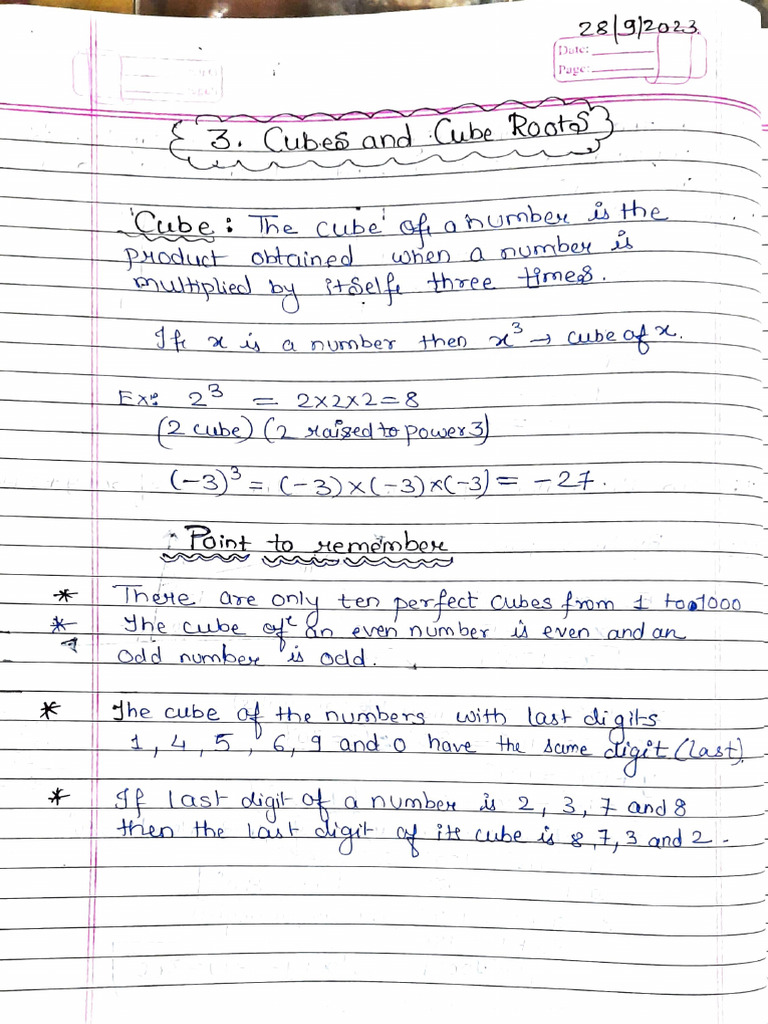 28/9/2023.
Date:
Page:
3. Cubes and Cube Roots
Cube: The cube of a number is the
product obtained when a number is
multiplied by itself three times.
If x is a number then x³ → cube of x.
Ex: 2³ = 2×2×2=8
(2 cube) (2 raised to power 3)
(-3)³ = (-3)×(-3)×(-3) = -27.
Point to remember
* There are only ten perfect cubes from 1 to 1000
* The cube of an even number is even and an
odd number is odd.
* The cube of the numbers with last digits
1, 4, 5, 6, 9 and 0 have the same digit (last).
* If last digit of a number is 2, 3, 7 and 8
then the last digit of its cube is 8, 7, 3 and 2.